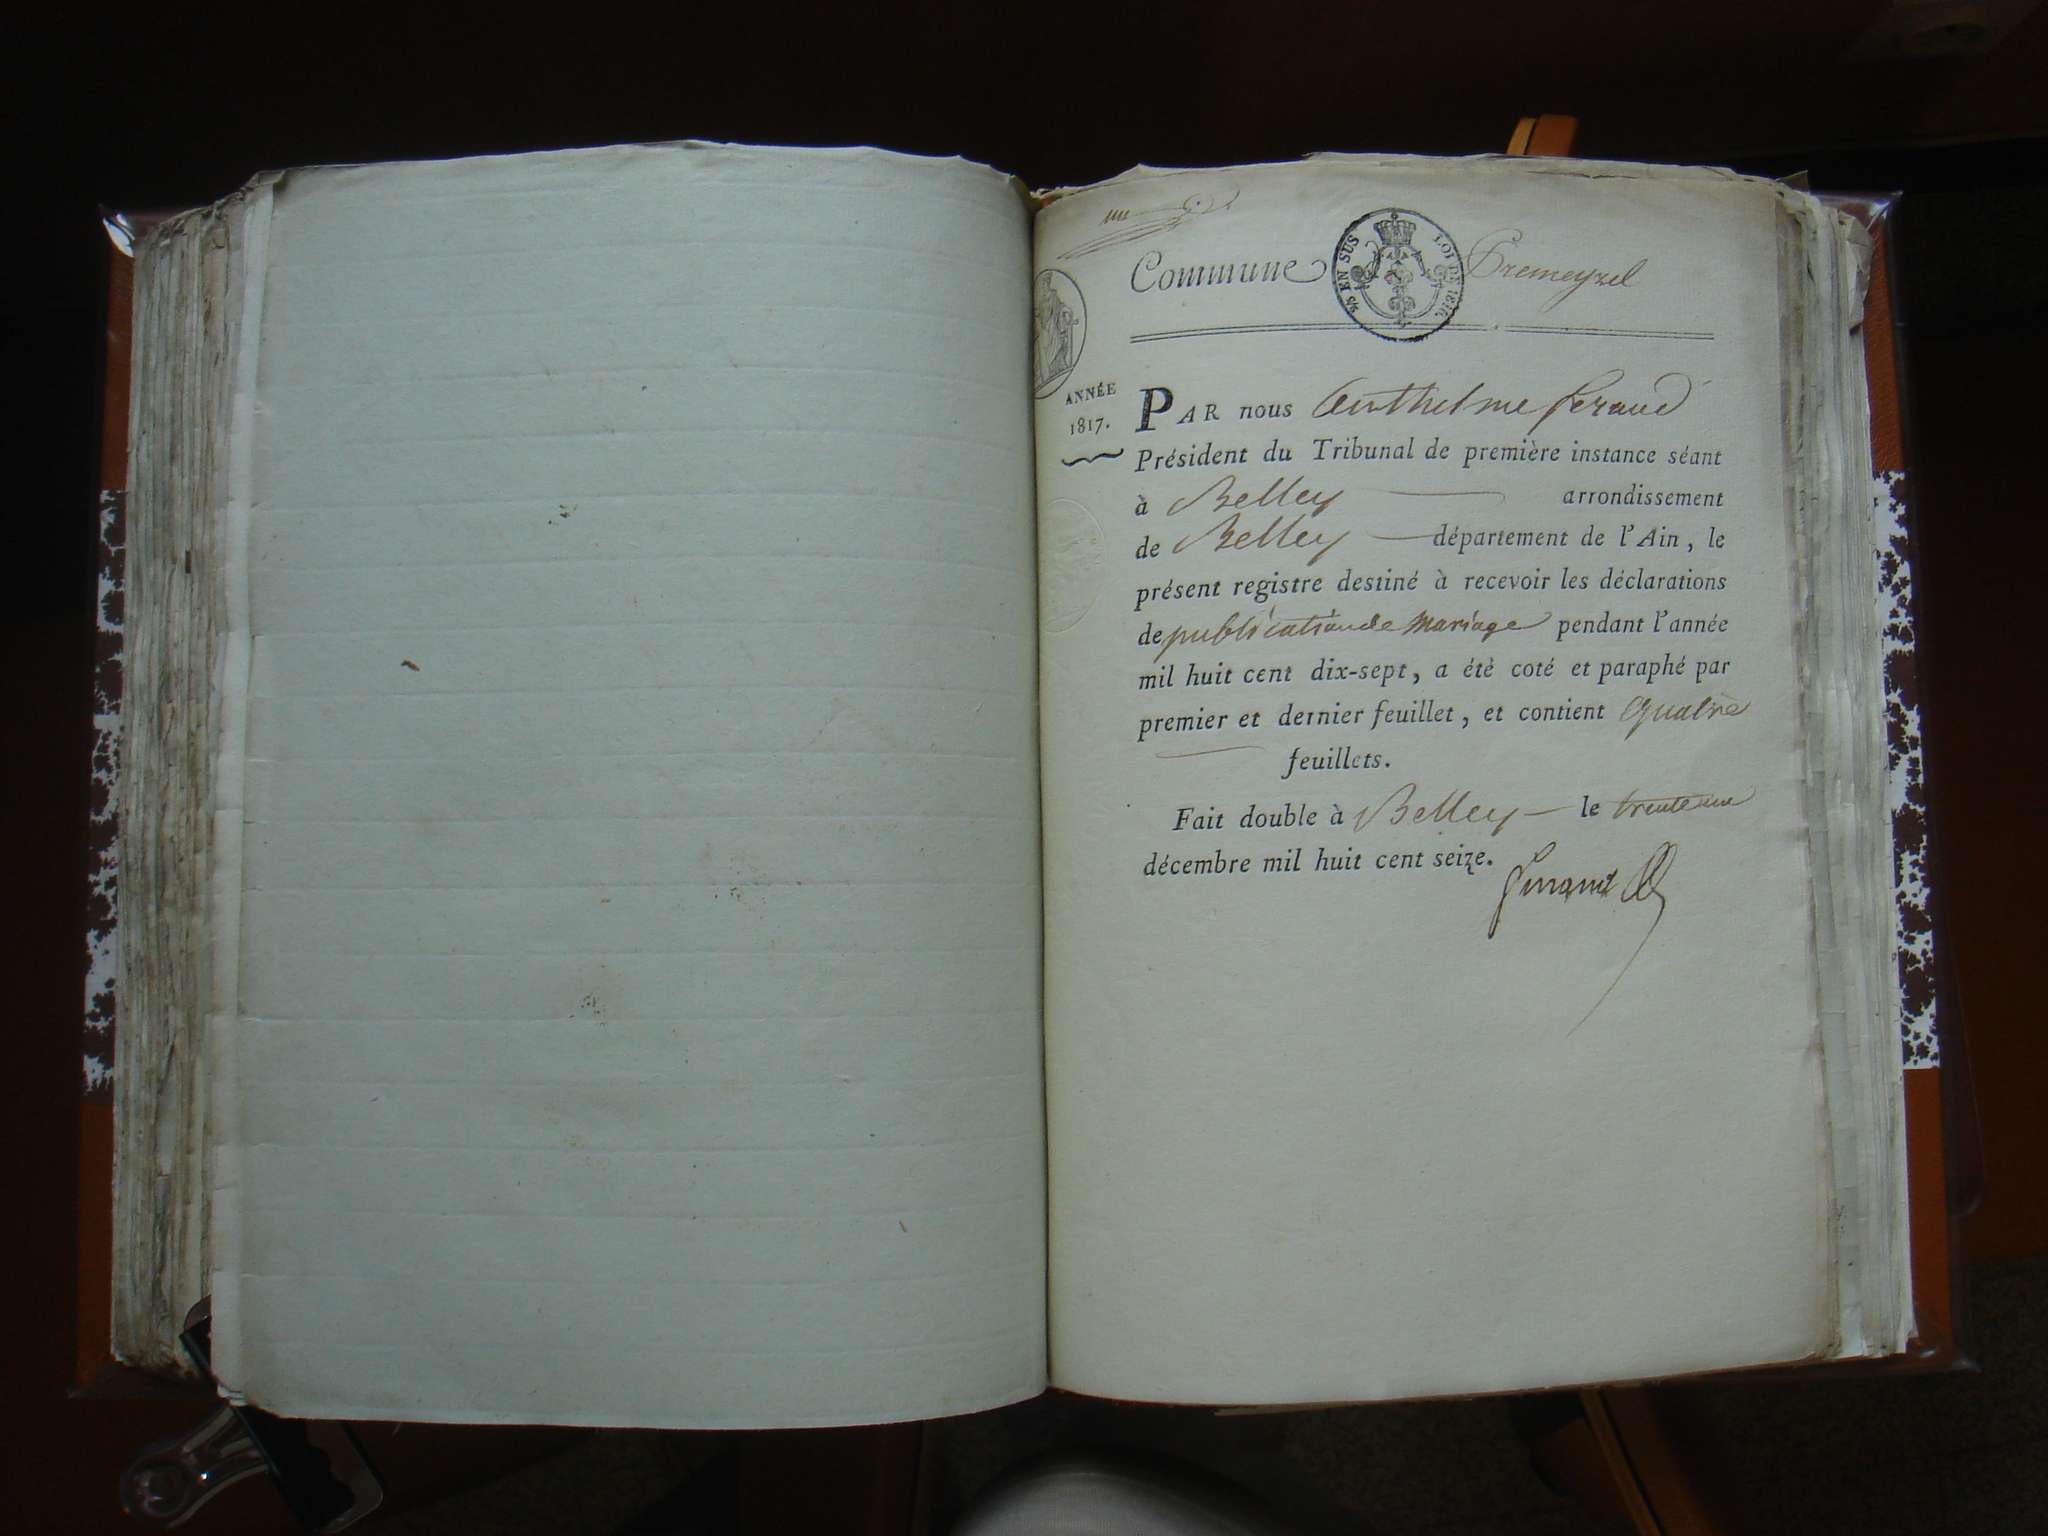 un
Commune Premeyzel
EN SUS LOI DE 1816.
ANNÉE
1817.
PAR nous Anthelme feraud
Président du Tribunal de première instance séant
à Belley arrondissement
de Belley département de l'Ain, le
présent registre destiné à recevoir les déclarations
de publication de mariage pendant l'année
mil huit cent dix-sept, a été coté et paraphé par
premier et dernier feuillet, et contient quatre
feuillets.
Fait double à Belley le trente un
décembre mil huit cent seize.